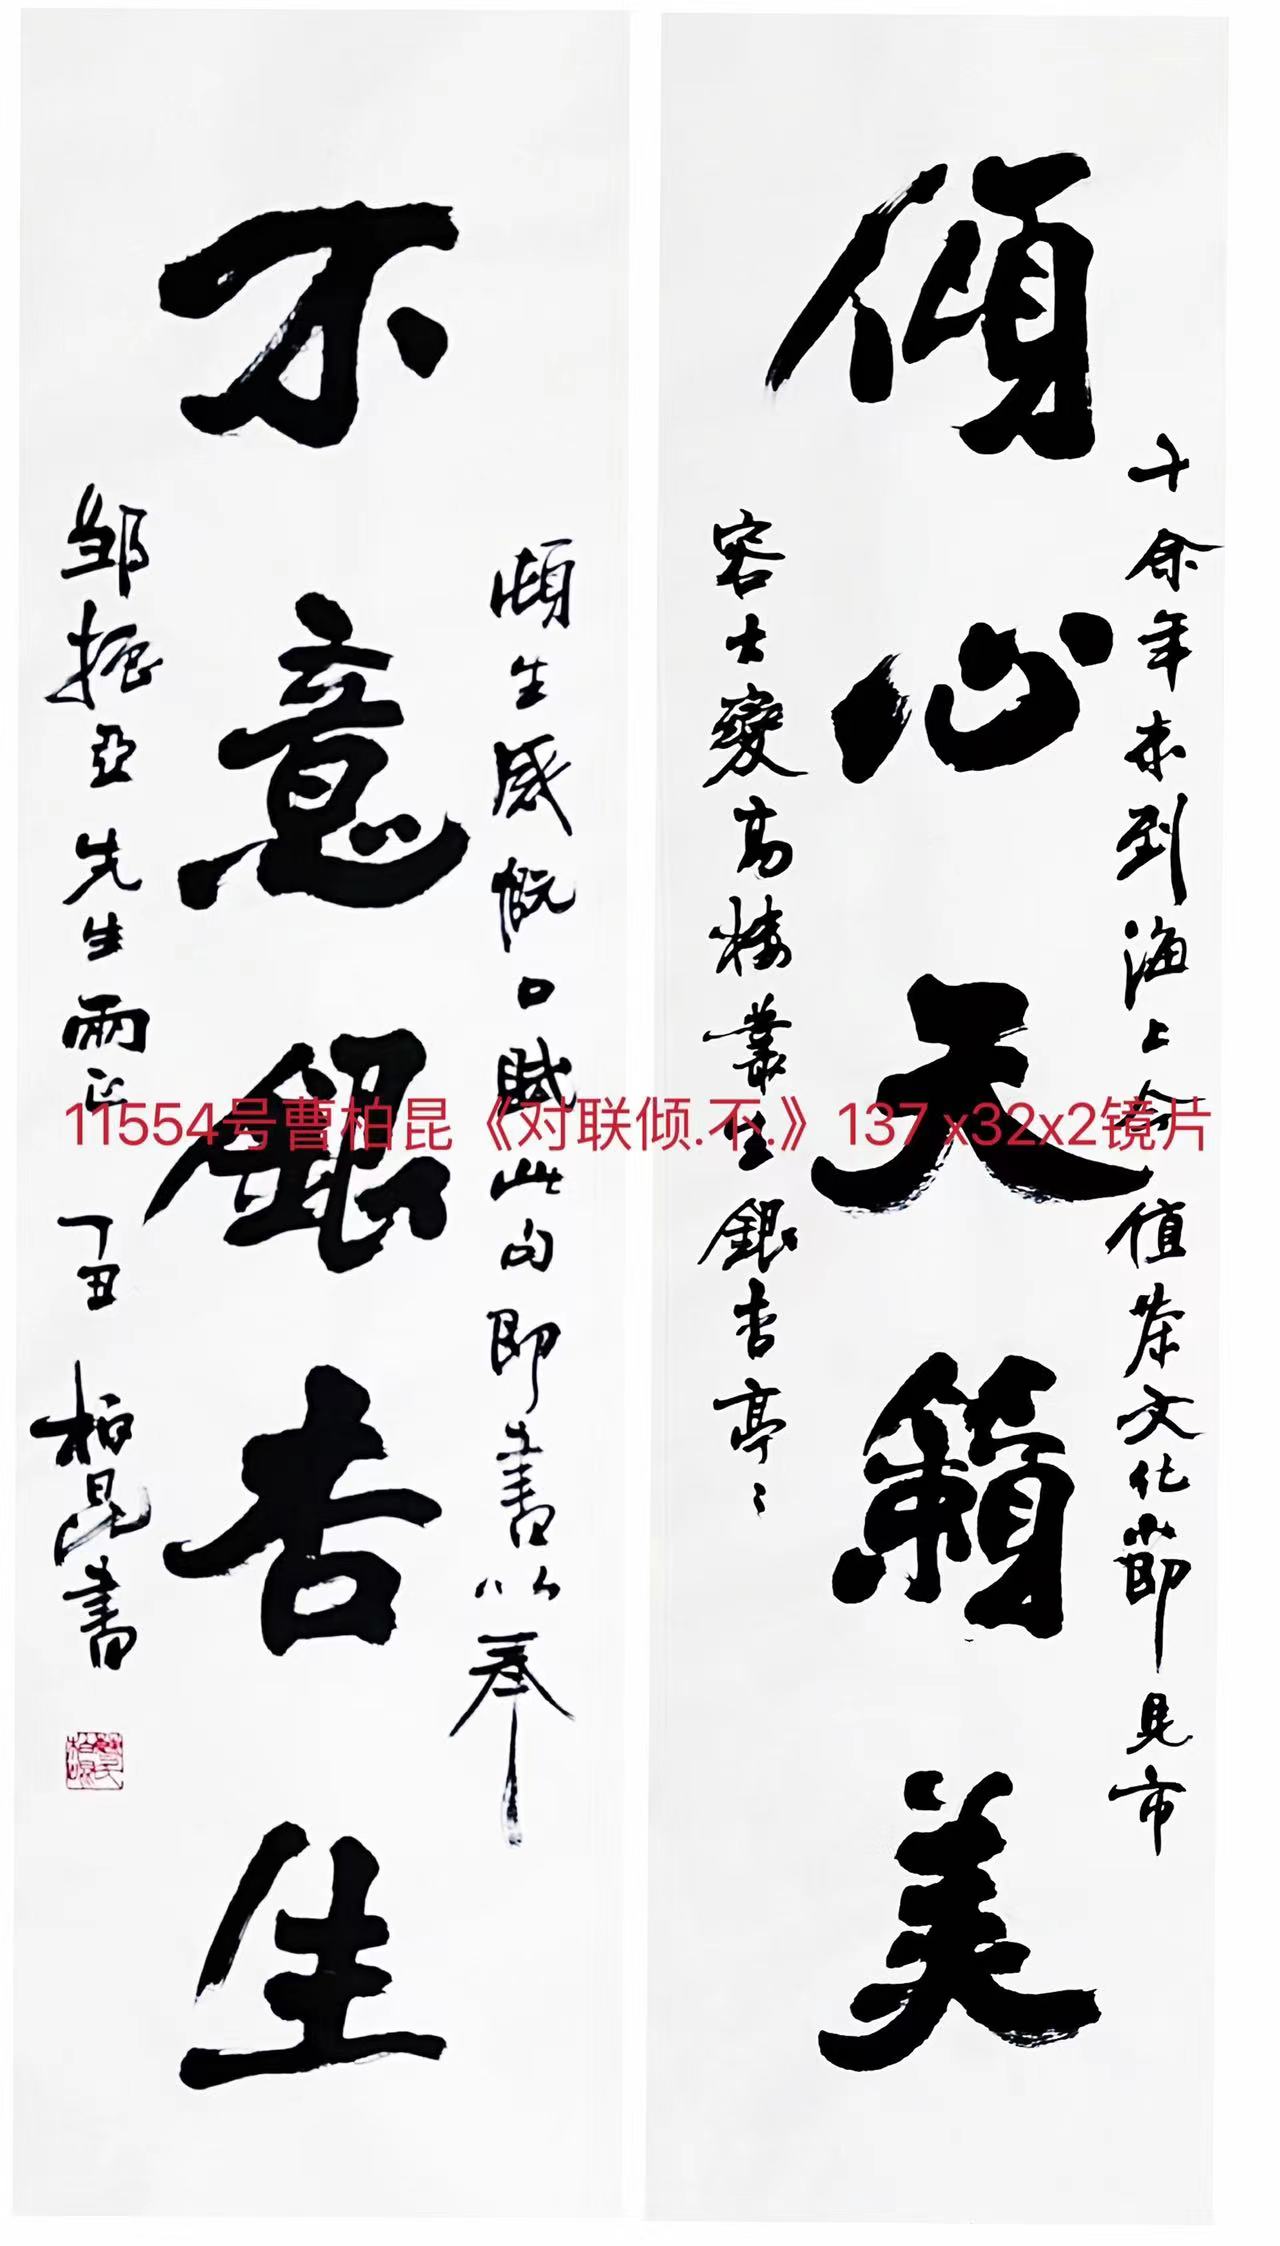 傾心天籟美
十余年未到海上今值茶文化節見市
容大變高楼叢生銀杏亭〻
不意銀杏生
頗生感慨口賦此句即書以奉
邹振亞先生兩正
丁丑 柏昆書
11554号曹柏昆《对联倾.不.》137 x32x2镜片